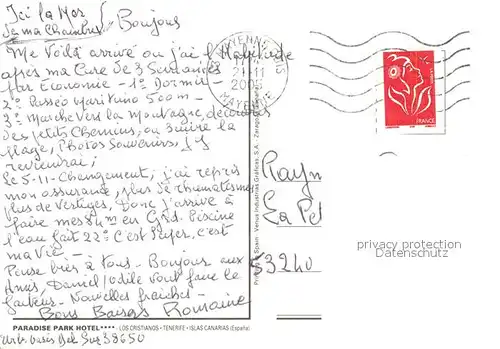 Ici la Mer
de ma Chambre Bonjour
Me Voilà arrivé ou j'ai l'Habitude
apres ma Cure de 3 Semaines
par Economie - 1° Dormir -
2° Passéo Maritimo 500m -
3° Marche Vers la Montagne, découvrir
des petits Chemins, ou suivre la
plage, Photos Souvenirs, j'y
reviendrai,
Le 5-11- Changement, j'ai repris
mon assurance, plus de rhumatismes
plus de Vertiges, Donc j'arrive à
faire mes 8 m en Grd. Piscine
l'eau fait 22° C'est Super, c'est
ma Vie -
Pense bien à tous - Bonjour aux
Amis, Daniel/Odile vont faire le
facteur - Nouvelles fraiches -
Bons Baisers Romaine
PARADISE PARK HOTEL**** - LOS CRISTIANOS - TENERIFE - ISLAS CANARIAS (España)
38650
MAYENNE
21-11
2005
MAYENNE
FRANCE
Venus Industrias Gráficas, S.A.
Raym
La Pel
53240
privacy protection
Datenschutz